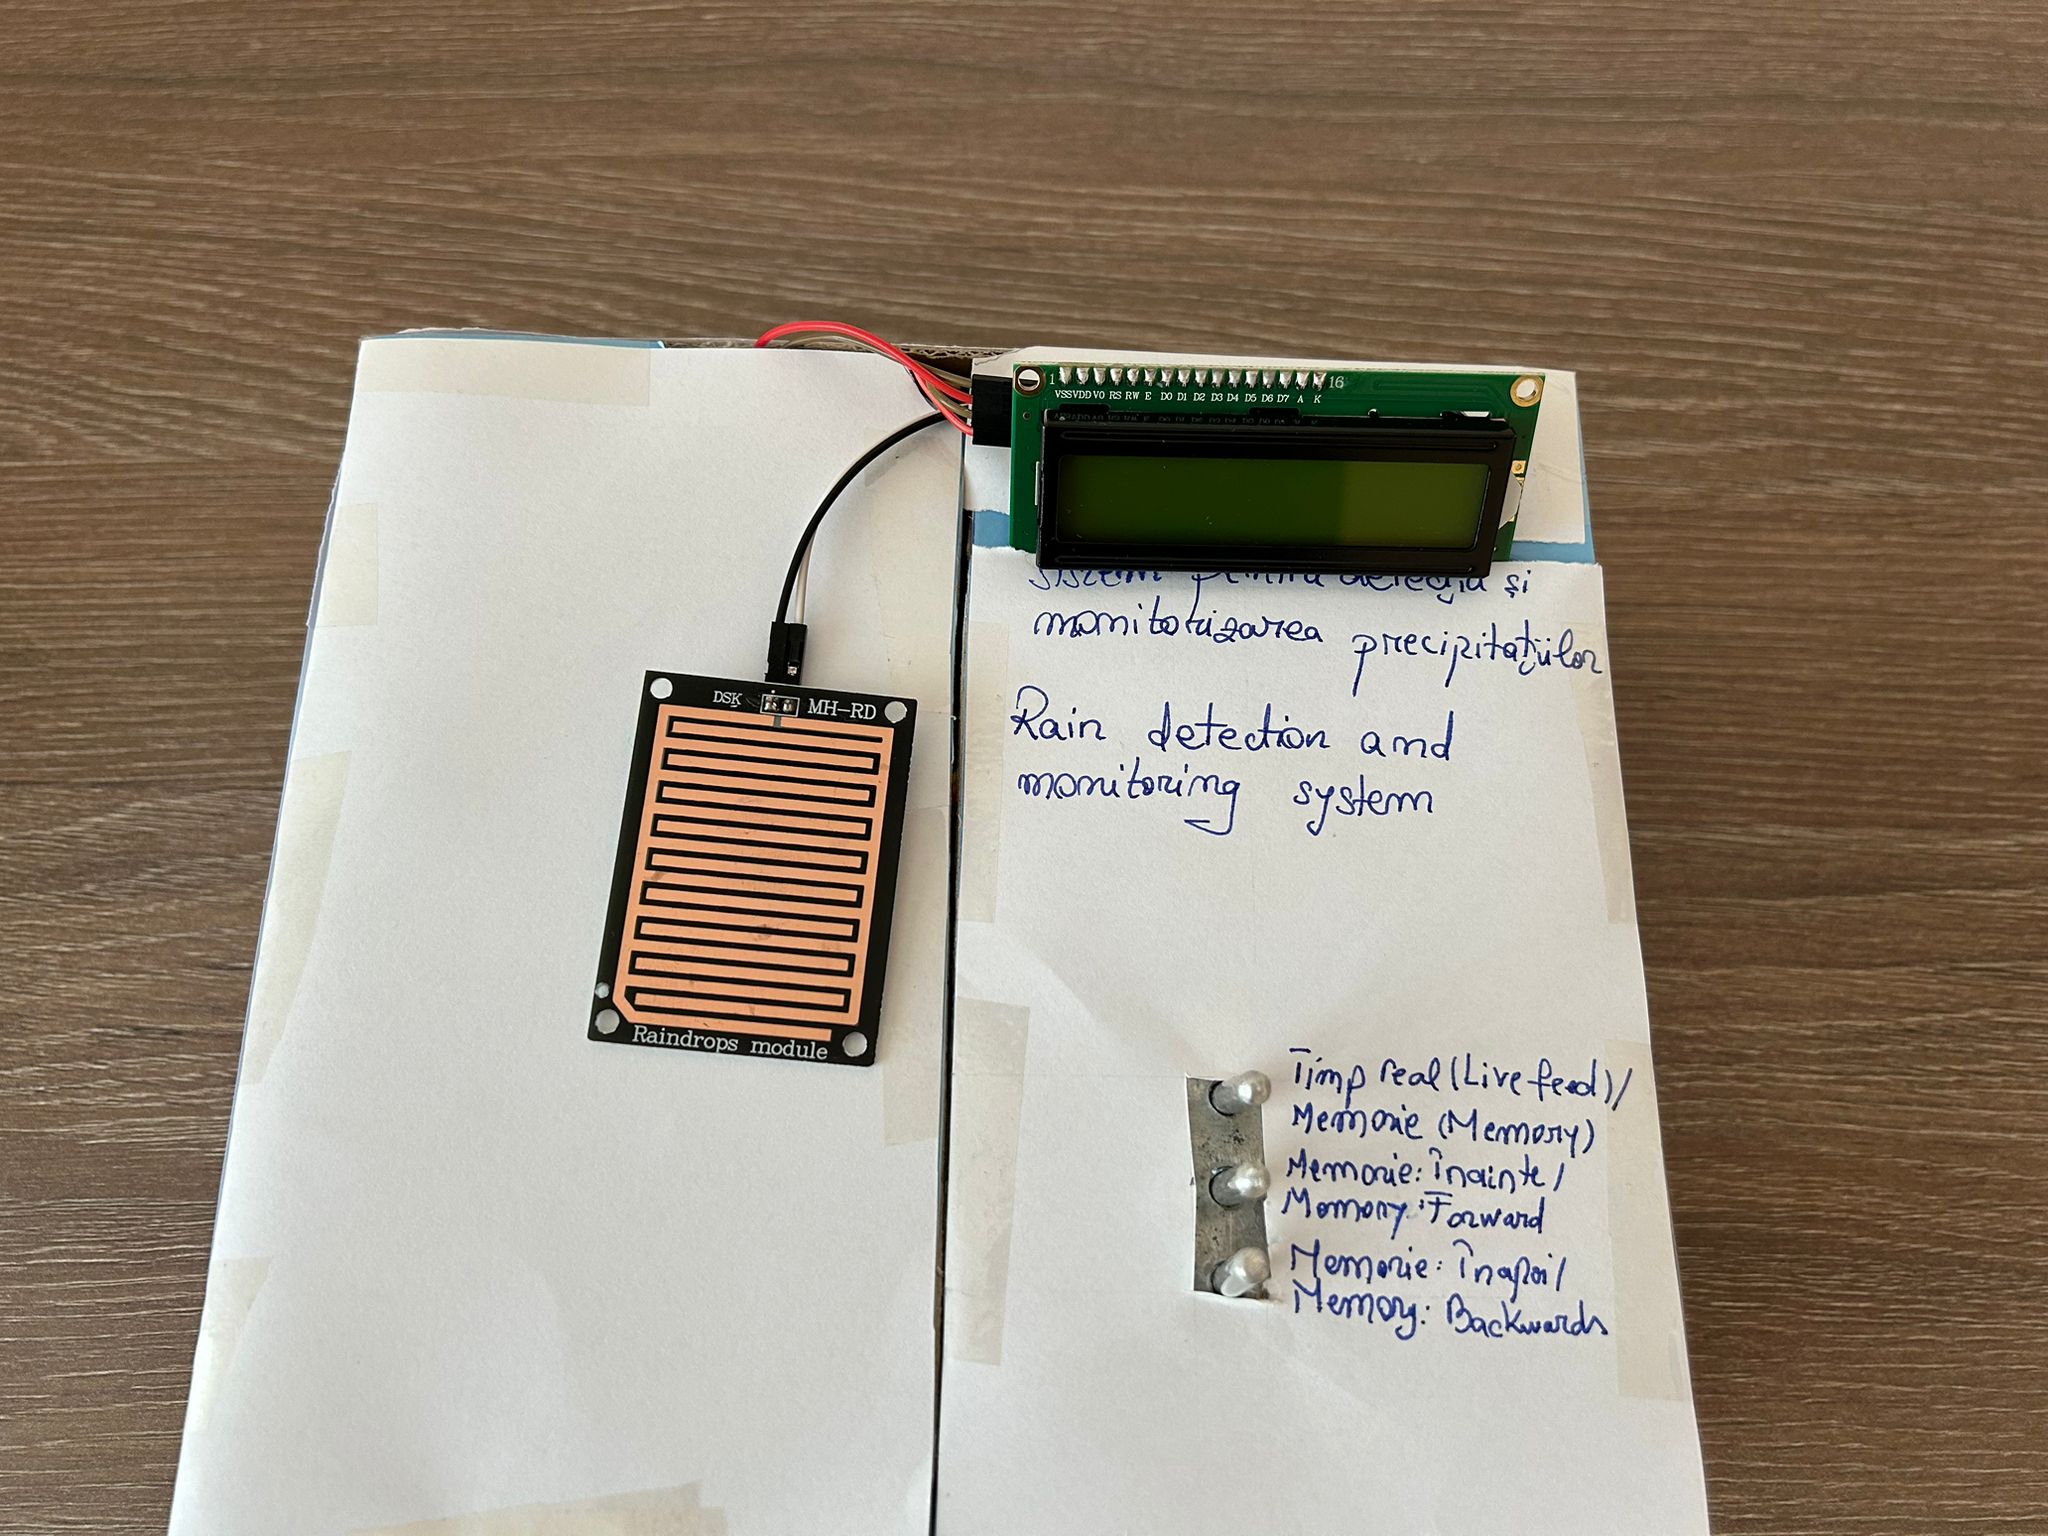 1 16
VSS VDD VO RS RW E D0 D1 D2 D3 D4 D5 D6 D7 A K
sistem pentru detecția și
monitorizarea precipitațiilor
Rain detection and
monitoring system
DSK MH-RD
Raindrops module
Timp real (Live feed)/
Memorie (Memory)
Memorie: Înainte/
Memory: Forward
Memorie: Înapoi/
Memory: Backwards